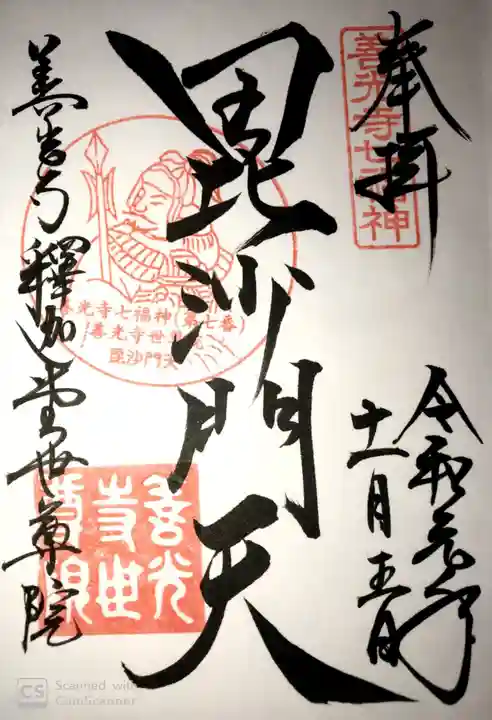 奉拝
善光寺七福神
令和元年
十一月五日
毘沙門天
善光寺七福神(第七番)
善光寺世尊院
毘沙門天
善光寺釋迦堂世尊院
善光
寺世
尊院
CS
Scanned with
CamScanner